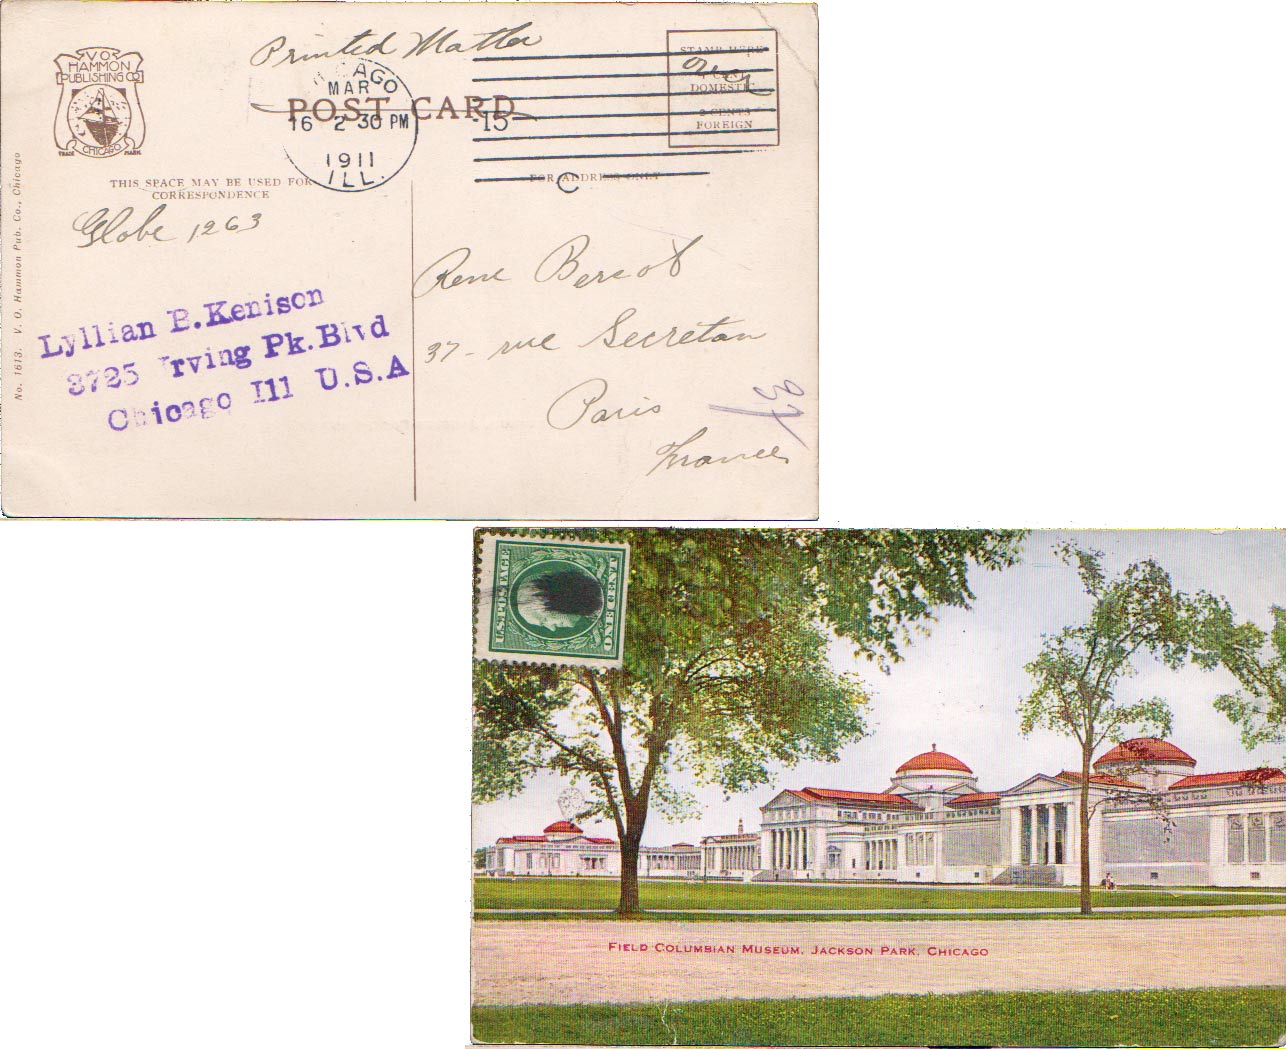 Printed Matter
V O
HAMMON
PUBLISHING CO
CHICAGO
TRADE MARK
CHICAGO
MAR
16 2 30 PM
1911
ILL.
15
C
POST CARD
STAMP HERE
1 CENT
DOMESTIC
2 CENTS
FOREIGN
over
THIS SPACE MAY BE USED FOR
CORRESPONDENCE
FOR ADDRESS ONLY
Globe 1263
Rene Bercot
37 - rue Secretan
Paris
France
37
Lyllian B. Kenison
3725 Irving Pk. Blvd
Chicago Ill U.S.A
No. 1613. V. O. Hammon Pub. Co., Chicago
U.S. POSTAGE
ONE CENT 1
FIELD COLUMBIAN MUSEUM, JACKSON PARK, CHICAGO